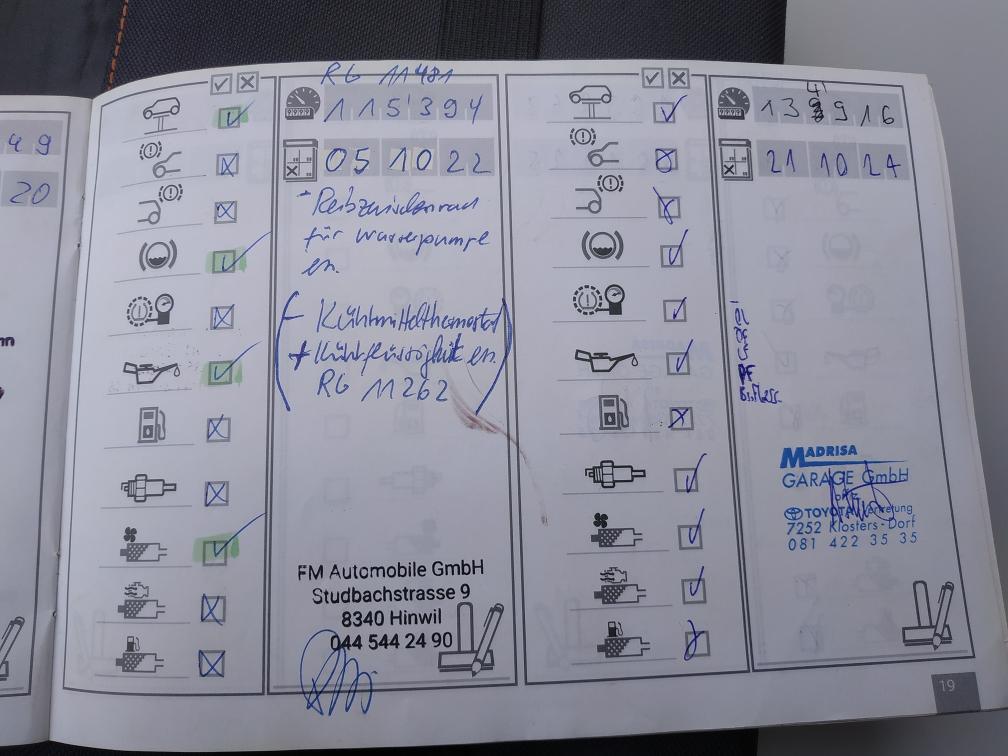 49
20
RG 11481
115'394
05 10 22
- Reibzwischenrad
für Wasserpumpe
en.
- Kühlmittelthermostat
+ Kühlflüssigkeit en.
RG 11262
FM Automobile GmbH
Studbachstrasse 9
8340 Hinwil
044 544 24 90
4
13 9 16
21 10 24
MADRISA
GARAGE GmbH
TOYOTA Vertretung
7252 Klosters-Dorf
081 422 35 35
19